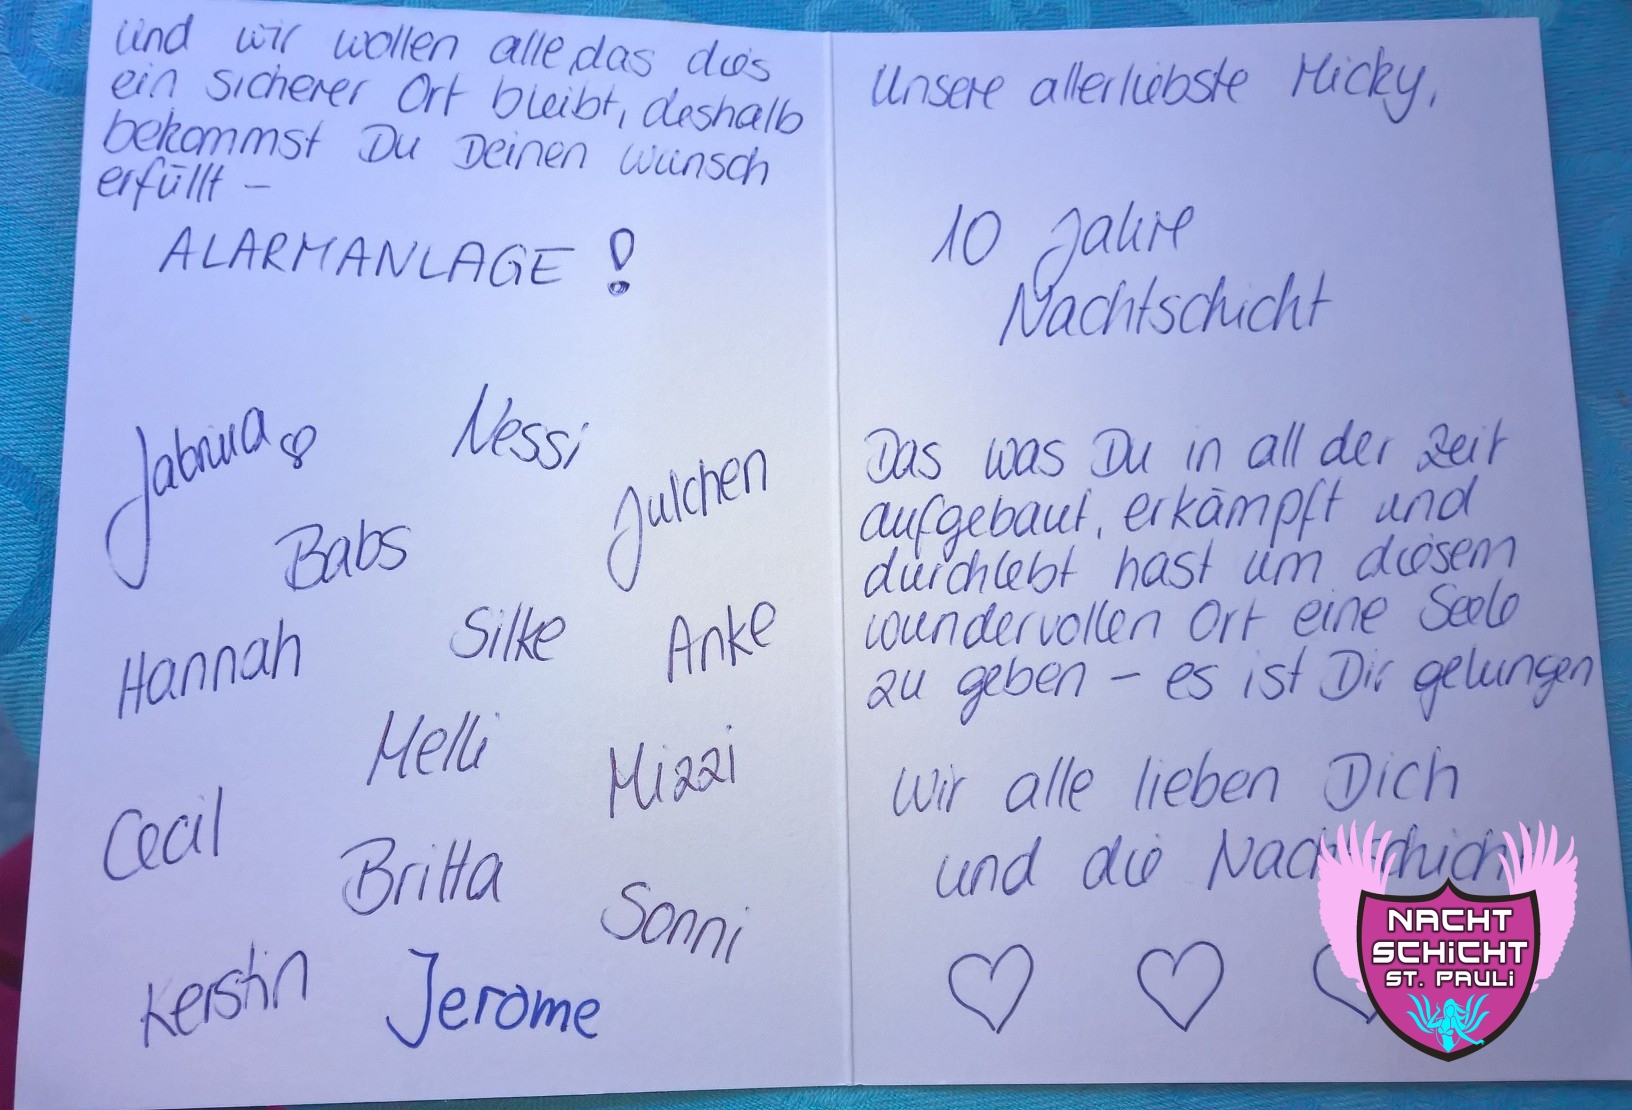 Unsere allerliebste Micky,
10 Jahre
Nachtschicht
Das was Du in all der Zeit
aufgebaut, erkämpft und
durchlebt hast um diesem
wundervollen Ort eine Seele
zu geben – es ist Dir gelungen
Wir alle lieben Dich
und die Nachtschicht
und wir wollen alle, das dies
ein sicherer Ort bleibt, deshalb
bekommst Du Deinen Wunsch
erfüllt –
ALARMANLAGE!
Nessi
Julchen
Babs
Hannah
Silke
Anke
Melli
Mizzi
Cecil
Britta
Sonni
Kerstin
Jerome
NACHT
SCHiCHT
ST. PAULi